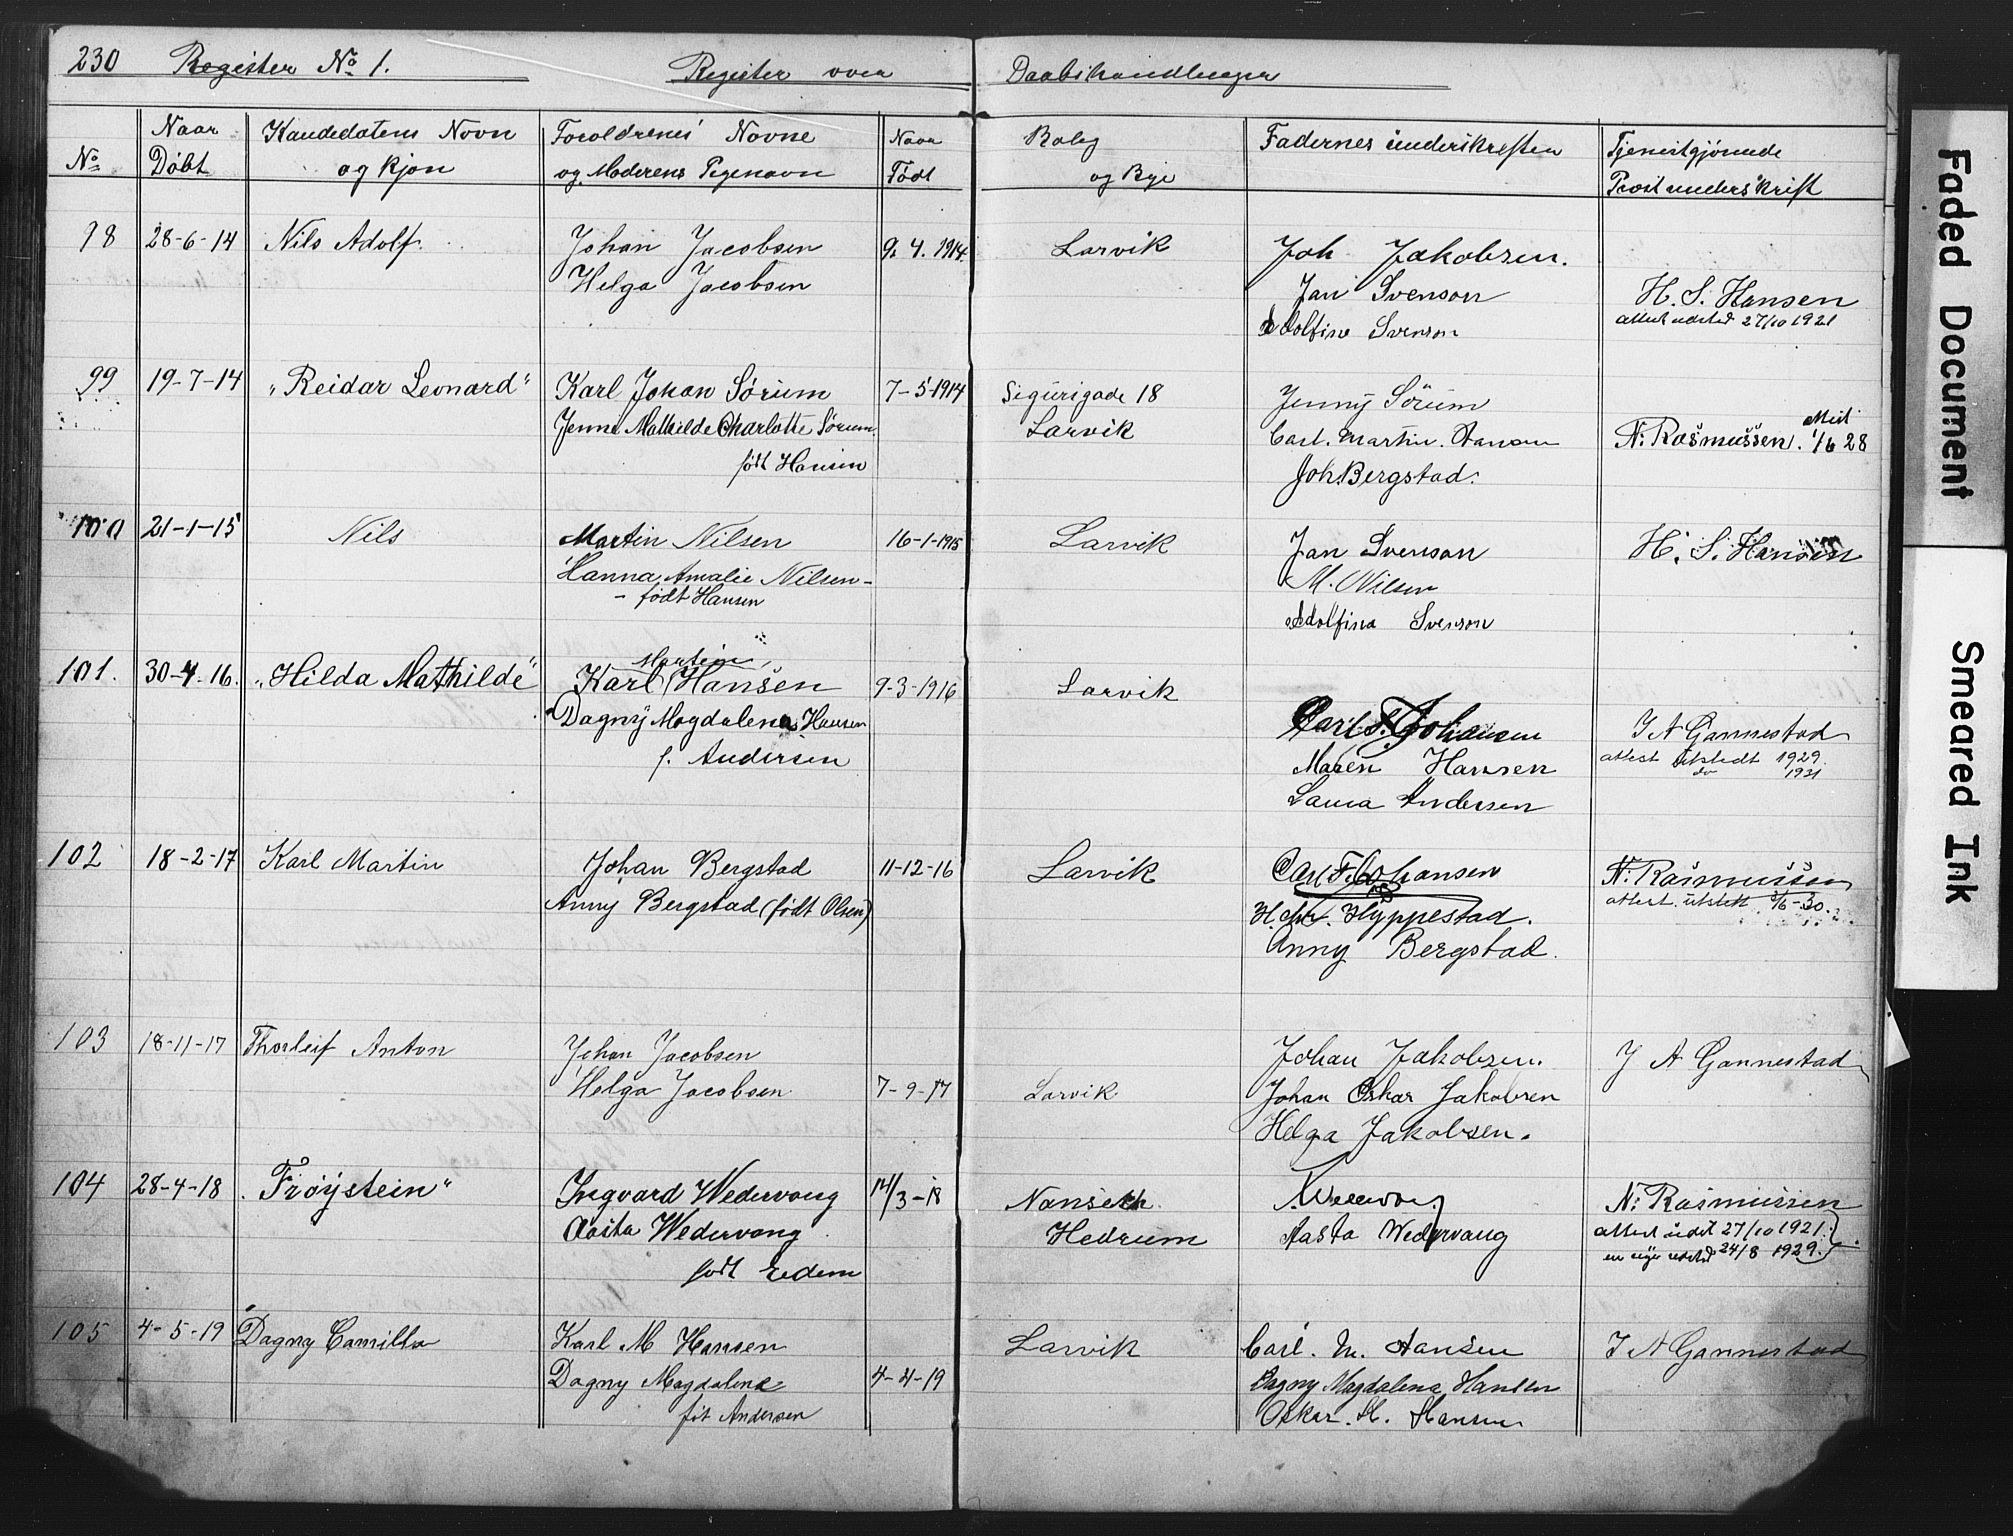 230 Register No 1. Register over Daabshandlinger
No
Naar Døbt
Kandedatens Navn og kjøn
Foreldrenes Navne og Moderens Pigenavn
Naar Født
Bolig og Bye
Fadernes underskrifter
Tjenestgjørende Præst underskrift
98 28-6-14 Nils Adolf. Johan Jacobsen 9. 4. 1914. Larvik Joh Jakobsen.
Helga Jacobsen Jan Svenson H. S. Hansen
Adolfine Svenson attest udsted 27/10 1921
99 19-7-14 "Reidar Leonard" Karl Johan Sørum 7-5-1914 Sigurigade 18 Jenny Sørum
Jenni Mathilde Charlotte Sørum Larvik Carl. Martin. Hansen N. Rasmussen. 1/6 28
født Hansen Joh. Bergstad.
100 21-1-15 Nils Martin Nilsen 16-1-1915 Larvik Jan Svenson H. S. Hansen
Hanna Amalie Nilsen - M. Nilsen
- født Hansen Adolfina Svenson
Martin
101. 30-4-16. "Hilda Mathilde" Karl Hansen 9-3-1916 Larvik
Dagny Magdalena Hansen Carl F. Johansen J A Gannestad
f. Andersen Maren Hansen attest utstedt 1929.
do 1931
Laura Andersen
102 18-2-17 Karl Martin Johan Bergstad 11-12-16 Larvik Carl F. Johansen N. Rasmussen
Anny Bergstad (født Olsen) H. Chr. Hyppestad. attest. utstett 3/6-30.
Anny Bergstad.
103 18-11-17 Thorleif Anton Johan Jacobsen Johan Jakobsen. J A Gannestad
Helga Jacobsen 7-9-17 Larvik Johan Oskar Jakobsen
Helga Jakobsen.
104 28-4-18 "Frøystein" Ingvard Wedervang 14/3-18 Nanseth. N. Rasmussen
Aasta Wedervang Hedrum Aasta Wedervang attest udst 27/10 1921.
født Eedem en nye udsted 24/8 1929.
105 4-5-19 Dagny Camilla Karl M Hansen Larvik Carl. M. Hansen J A Gannestad
Dagny Magdalene 4-4-19 Dagny Magdalena Hansen
føt Andersen Oskar. H. Hansen
Faded Document
Smeared Ink